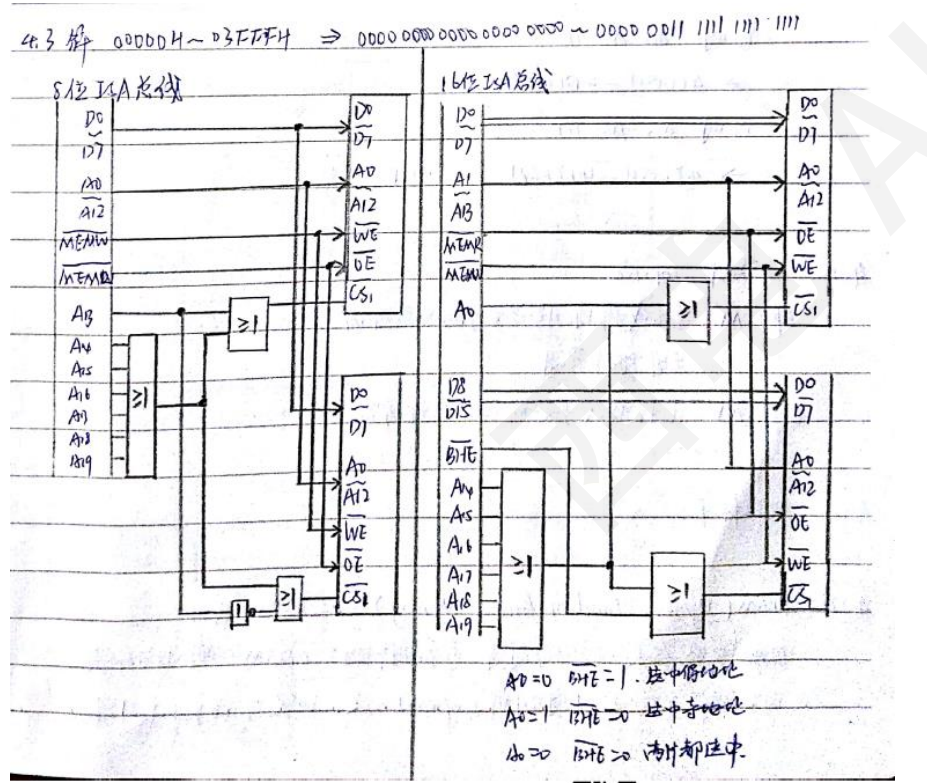 4.3 解 00000H~03FFFH ⇒ 0000 0000 0000 0000 0000 ~ 0000 0011 1111 1111 1111
8位ISA总线
D0
~
D7
A0
~
A12
MEMW
MEMR
A13
A14
A15
A16
A17
A18
A19
≥1
≥1
D0
~
D7
A0
~
A12
WE
OE
CS1
D0
~
D7
A0
~
A12
WE
OE
CS1
1
≥1
16位ISA总线
D0
~
D7
A1
~
A13
MEMR
MEMW
A0
≥1
D0
~
D7
A0
~
A12
OE
WE
CS1
D8
~
D15
BHE
A14
A15
A16
A17
A18
A19
≥1
≥1
D0
~
D7
A0
~
A12
OE
WE
CS1
A0=0 BHE=1. 选中偶地址
A0=1 BHE=0 选中奇地址
A0=0 BHE=0 两片都选中.
西电